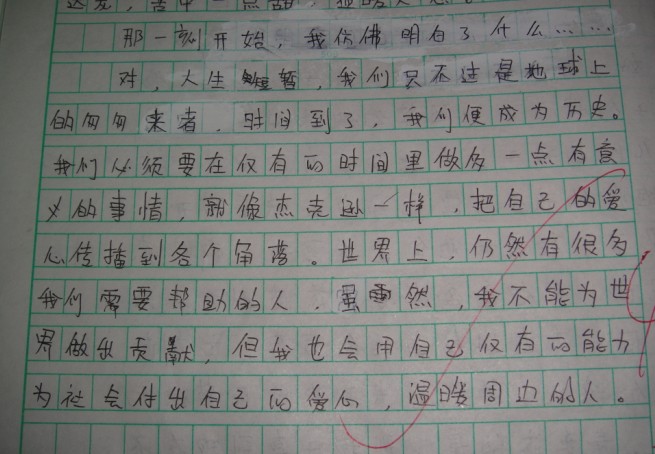 那一刻开始，我仿佛明白了什么……
对，人生短暂，我们只不过是地球上
的匆匆来者，时间到了，我们便成为历史。
我们必须要在仅有的时间里做多一点有意
义的事情，就像杰克逊一样，把自己的爱
心传播到各个角落。世界上，仍然有很多
我们需要帮助的人，虽然，我不能为世
界做出贡献，但我也会用自己仅有的能力
为社会付出自己的爱心，温暖周边的人。